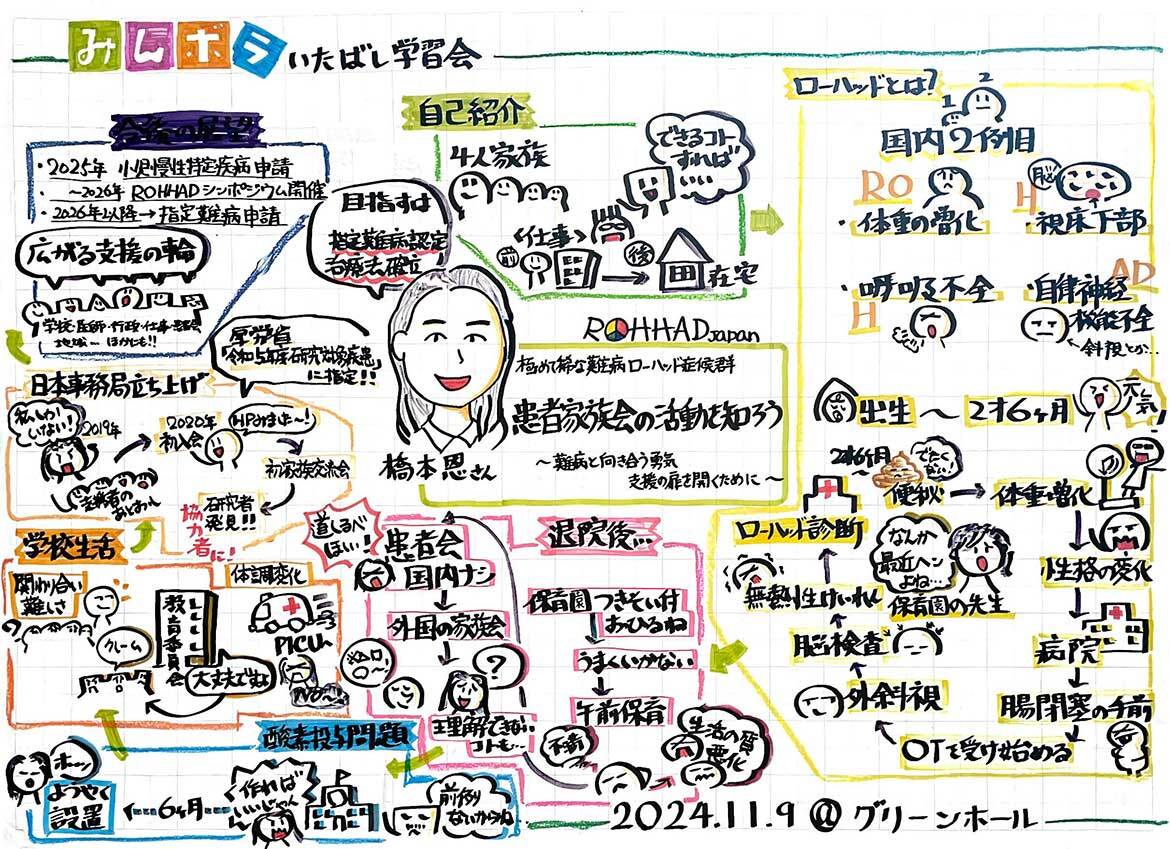 みんホラ いたばし学習会
自己紹介
4人家族
できるコト
すれば
いい
<仕事>
前
後
在宅
ローハッドとは?
1
2
国内2例目
RO
・体重の増化
H
脳
・視床下部
・呼吸不全
H
AD
・自律神経
機能不全
←斜視とか…
出生 〜 2才6ヶ月
元気!
2才6ヶ月
便秘
でたく
ない!
体重増化
性格の変化
病院
腸閉塞の手前
OTを受け始める
外斜視
脳検査
無熱性けいれん
ローハッド診断
なんか
最近ヘン
よね…
保育園の先生
今後の展望
・2025年 小児慢性特定疾病申請
〜2026年 ROHHADシンポジウム開催
・2026年以降→指定難病申請
広がる支援の輪
学校・医師・行政・仕事・患者会
地域… ほかにも!!
目指すは
指定難病認定
治療法確立
厚労省
「令和5年度研究対象疾患」
に指定!!
ROHHAD Japan
極めて稀な難病 ローハッド症候群
患者家族会の活動を知ろう
〜難病と向き合う勇気
支援の扉を開くために〜
橋本恩さん
日本事務局立ち上げ
私しか!
いない!
2019年
2020年
初入会
HPみました〜!
初家族交流会
研究者
発見!!
協力者に!
道しるべ
ほい!
患者会
国内ナシ
外国の家族会
?
理解できない
コトも…
退院後…
保育園 つきそい付
おひるね
うまくいかない
午前保育
不安
生活の質
悪化
学校生活
関わり合い
難しさ
クレーム
教育委員会
大丈夫ですよ
体調変化
PICUへ
酸素投与問題
前例
ないからねん
作れば
いいじゃん
6ヶ月
ようやく
設置
ホッ
2024.11.9 @グリーンホール